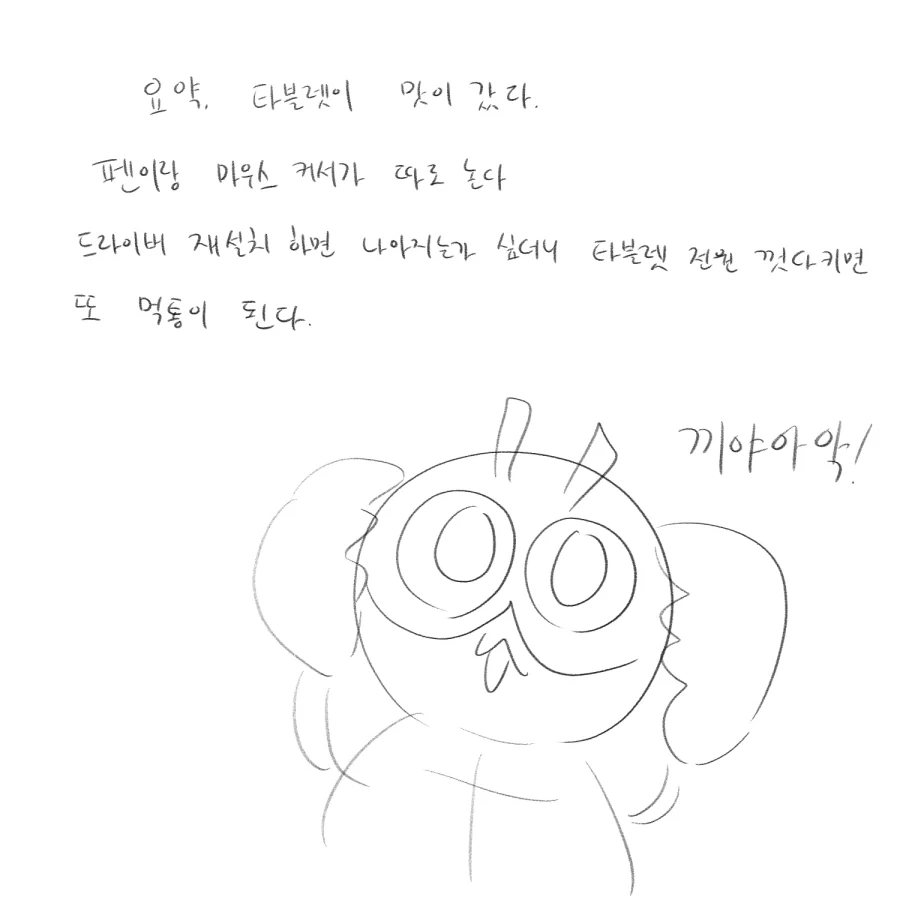 요약. 타블렛이 맛이 갔다.
펜이랑 마우스 커서가 따로 논다
드라이버 재설치 하면 나아지는가 싶더니 타블렛 전원 껏다키면
또 먹통이 된다.
끼야아악!